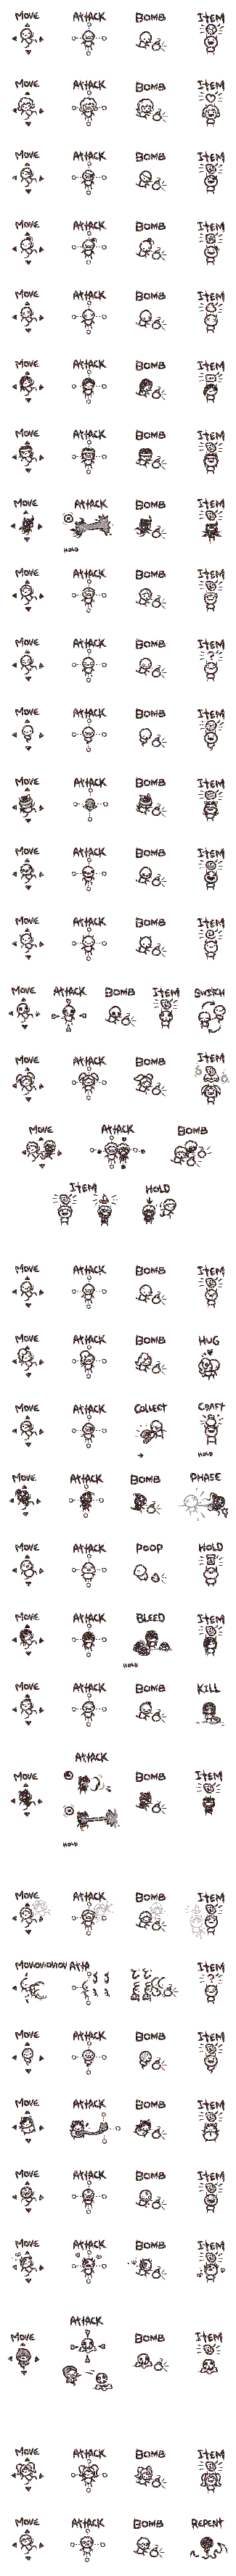 MOVE ATTACK BOMB ITEM
MOVE ATTACK BOMB ITEM
MOVE ATTACK BOMB ITEM
MOVE ATTACK BOMB ITEM
MOVE ATTACK BOMB ITEM
MOVE ATTACK BOMB ITEM
MOVE ATTACK BOMB ITEM
MOVE ATTACK BOMB ITEM
HOLD
MOVE ATTACK BOMB ITEM
MOVE ATTACK BOMB ITEM
?
MOVE ATTACK BOMB ITEM
MOVE ATTACK BOMB ITEM
MOVE ATTACK BOMB ITEM
MOVE ATTACK BOMB ITEM
MOVE ATTACK BOMB ITEM SWITCH
MOVE ATTACK BOMB ITEM
MOVE ATTACK BOMB
ITEM HOLD
MOVE ATTACK BOMB ITEM
MOVE ATTACK BOMB HUG
MOVE ATTACK COLLECT CRAFT
HOLD
MOVE ATTACK BOMB PHASE
MOVE ATTACK POOP HOLD
MOVE ATTACK BLEED ITEM
HOLD
MOVE ATTACK BOMB KILL
ATTACK
MOVE BOMB ITEM
HOLD
MOVE ATTACK BOMB ITEM
MOVOVOVOV ATTA ITEM
?
MOVE ATTACK BOMB ITEM
MOVE ATTACK BOMB ITEM
MOVE ATTACK BOMB ITEM
MOVE ATTACK BOMB ITEM
ATTACK
MOVE BOMB ITEM
MOVE ATTACK BOMB ITEM
MOVE ATTACK BOMB REPENT